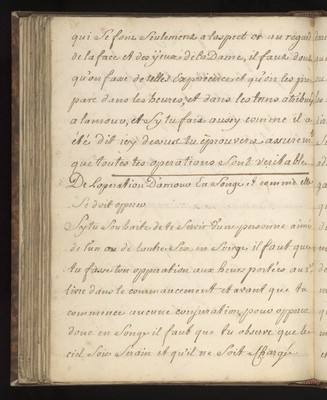 qui se font seulement a laspect ou au regard
de la face et des yeux de la Dame, il faut donc
qu'on fasse de telles Experiences et qu'on les pre
pare dans les heures, et dans les tems atribué
a lamour, et Sy tu fais ausy comme il a
été dit icy dessus tu éprouvera assurem.t
que toutes tes operations Sont veritable
De L'operation D'amour En Songe et comme elle
Se doit
Sy tu Souhaite de te Servir d'une personne
de l'un ou de lautre Sex en Songe il faut que
tu fasse ton opperation aux heures portées au
livre dans le commancement et avant que tu
commence aucune conjuration pour
donc en Songe il faut que tu observe que le
ciel Sois Serain et qu'il ne Soit Chargé